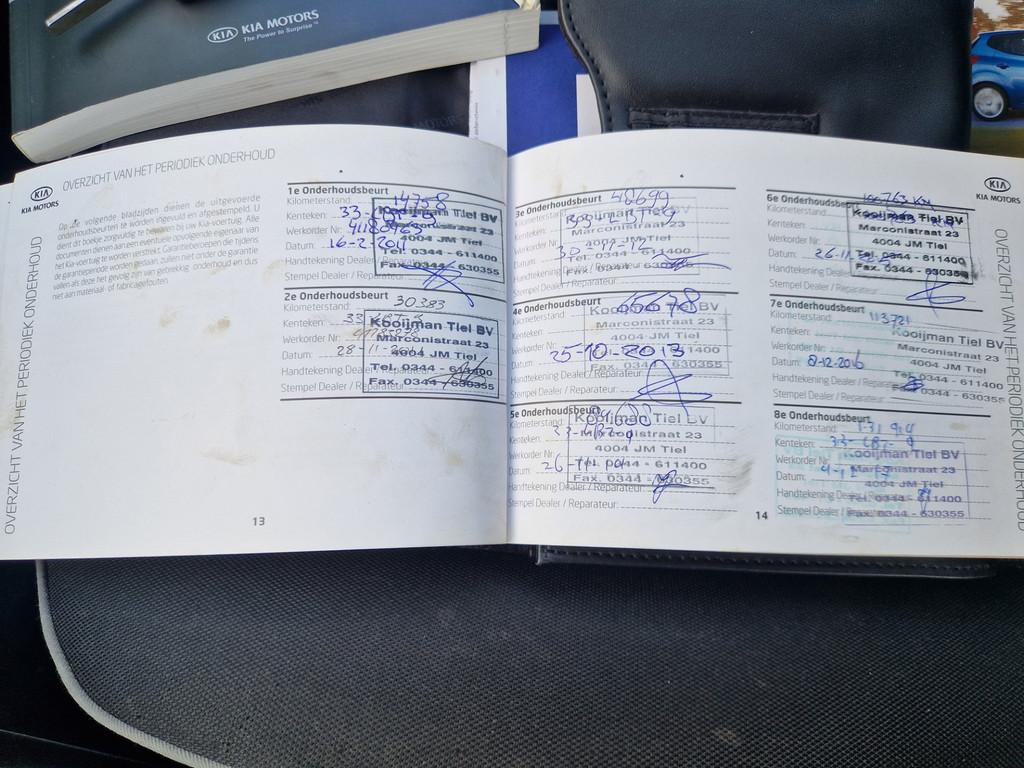 KIA KIA MOTORS
The Power to Surprise™
OVERZICHT VAN HET PERIODIEK ONDERHOUD
KIA
KIA MOTORS
OVERZICHT VAN HET PERIODIEK ONDERHOUD
Op de volgende bladzijden dienen de uitgevoerde
onderhoudsbeurten te worden ingevuld en afgestempeld. U
dient dit boekje zorgvuldig te bewaren bij uw Kia-voertuig. Alle
documenten dienen aan een eventuele opvolgende eigenaar van
het Kia-voertuig te worden verstrekt. Garantieberoepen die tijdens
de garantieperiode worden gedaan, zullen niet onder de garantie
vallen als deze het gevolg zijn van gebrekkig onderhoud en dus
niet aan materiaal- of fabricagefouten.
1e Onderhoudsbeurt
Kilometerstand: 14758
Kenteken: 33-
Werkorder Nr:
Datum: 16-2-2011
Handtekening Dealer
Stempel Dealer / Reparateur:
Kooijman Tiel BV
Marconistraat 23
4004 JM Tiel
Tel. 0344 - 611400
Fax. 0344 - 630355
2e Onderhoudsbeurt
Kilometerstand: 30383
Kenteken: 33
Werkorder Nr:
Datum: 28-11-
Handtekening Dealer /
Stempel Dealer / Reparateur:
Kooijman Tiel BV
Marconistraat 23
4004 JM Tiel
Tel. 0344 - 611400
Fax. 0344 - 630355
13
3e Onderhoudsbeurt
Kilometerstand: 48699
Kenteken:
Werkorder Nr:
Datum:
Handtekening Dealer
Stempel Dealer / Reparateur:
Kooijman Tiel BV
Marconistraat 23
4004 JM Tiel
Tel. 0344 - 611400
Fax. 0344 - 630355
4e Onderhoudsbeurt
Kilometerstand: 65678
Kenteken:
Werkorder Nr:
Datum: 25-10-2013
Handtekening Dealer / Reparateur:
Stempel Dealer / Reparateur:
Kooijman Tiel BV
Marconistraat 23
4004 JM Tiel
1400
Fax. 0344 - 630355
5e Onderhoudsbeurt
Kilometerstand:
Kenteken:
Werkorder Nr:
Datum: 26-
Handtekening Dealer / Reparateur:
Stempel Dealer / Reparateur:
Kooijman Tiel BV
Marconistraat 23
4004 JM Tiel
Tel. 0344 - 611400
Fax. 0344 - 630355
14
6e Onderhoudsbeurt
Kilometerstand:
Kenteken:
Werkorder Nr:
Datum: 26-11
Handtekening Dealer
Stempel Dealer / Reparateur:
Kooijman Tiel BV
Marconistraat 23
4004 JM Tiel
Tel. 0344 - 611400
Fax. 0344 - 630355
7e Onderhoudsbeurt
Kilometerstand: 113721
Kenteken:
Werkorder Nr:
Datum: 8-12-2016
Handtekening Dealer / Reparateur:
Stempel Dealer / Reparateur:
Kooijman Tiel BV
Marconistraat 23
4004 JM Tiel
Tel. 0344 - 611400
Fax. 0344 - 630355
8e Onderhoudsbeurt
Kilometerstand:
Kenteken: 33-
Werkorder Nr:
Datum:
Handtekening Dealer
Stempel Dealer / Reparateur:
Kooijman Tiel BV
Marconistraat 23
4004 JM Tiel
Tel. 0344 - 611400
Fax. 0344 - 630355
KIA
KIA MOTORS
OVERZICHT VAN HET PERIODIEK ONDERHOUD